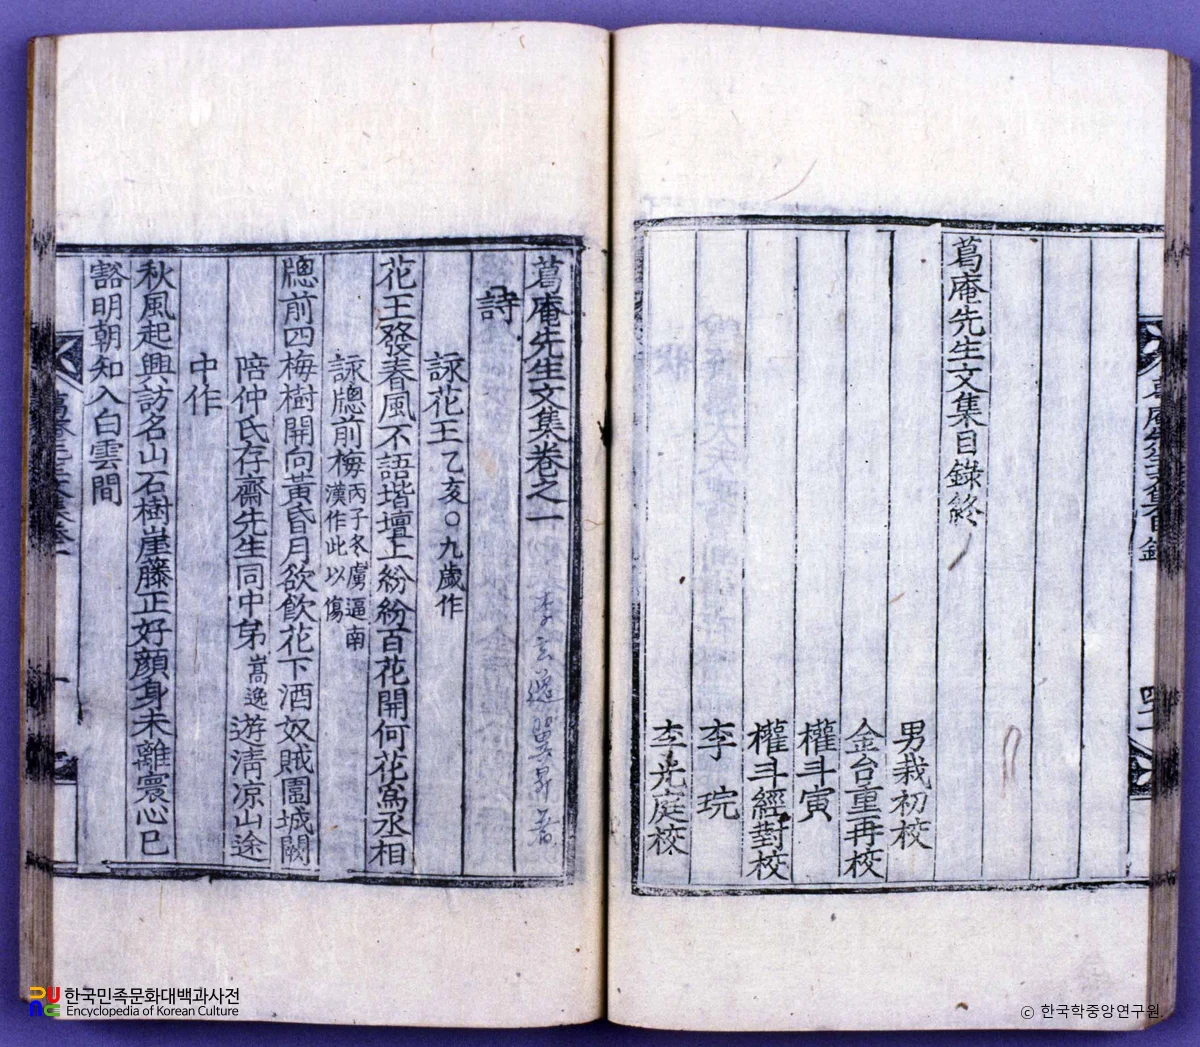 葛庵先生文集目錄終
男栽初校
金台重再校
權斗寅
權斗經對校
李琓
李光庭校
葛庵先生文集目錄
葛庵先生文集卷之一
李玄逸翼昇著
詩
詠花王乙亥○九歲作
花王發春風不語堦壇上紛紛百花開何花爲丞相
詠牕前梅丙子冬虜逼南漢作此以傷
牕前四梅樹開向黃昏月欲飮花下酒奴賊圍城闕
陪仲氏存齋先生同中弟嵩逸遊淸凉山途
中作
秋風起興訪名山石樹崖藤正好顔身未離寰心已
豁明朝知入白雲間
葛庵先生文集卷一
한국민족문화대백과사전
Encyclopedia of Korean Culture
ⓒ 한국학중앙연구원.